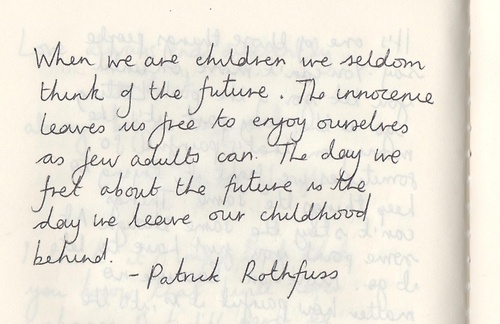 When we are children we seldom
think of the future. The innocence
leaves us free to enjoy ourselves
as few adults can. The day we
fret about the future is the
day we leave our childhood
behind.
- Patrick Rothfuss